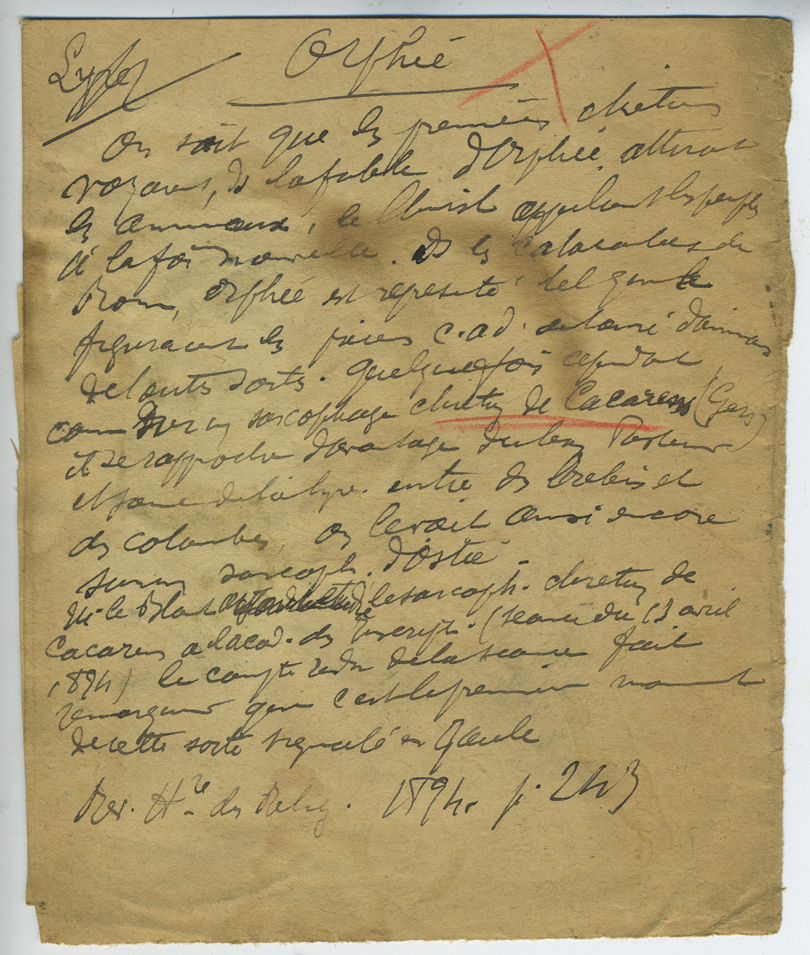 Lyre
Orphée
On sait que les premiers chretiens
voyaient, ds la fable d'Orphée attirant
les animaux, le Christ appelant les peuples
à la foi nouvelle. Ds les catacombes de
Rome, Orphée est represité tel que le
figuraient les païens c.ad. entouré d'animaux
de toutes sortes. Quelquefois cependant
comme sur un sarcophage chretien de Cacarens (Gers)
il se rapproche davantage du bon Pasteur
et joue de la lyre entre des brebis et
des colombes, on le voit ainsi encore
sur un sarcoph. d'Ostie.
M. le Blant le sarcoph. chretien de
Cacarens a l'acad. des Inscript. (seance du 13 avril
1894) le compte rendu de la seance fait
remarquer que c'est le premier monument
de cette sorte signalé en Gaule
Rev. Hre des Relig. 1894. p. 243